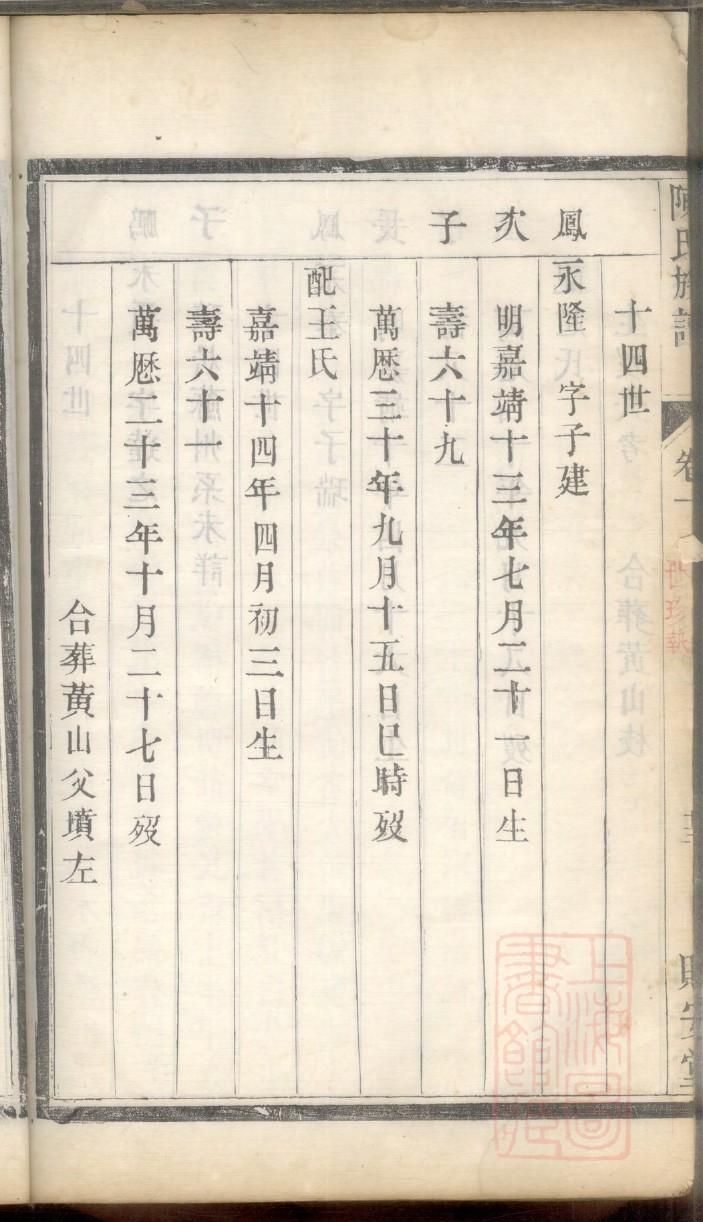 陳氏族譜 卷一 貽安堂
世珍執
十四世
鳳 永隆 字子建
次 明嘉靖十三年七月二十一日生
子 壽六十九
萬厯三十年九月十五日巳時殁
配王氏
嘉靖十四年四月初三日生
壽六十一
萬厯二十三年十月二十七日殁
合葬黃山父墳左
上海圖書館藏